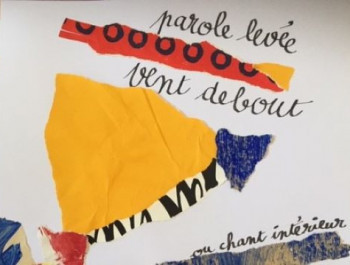 parole levée
vent debout
ou chant intérieur